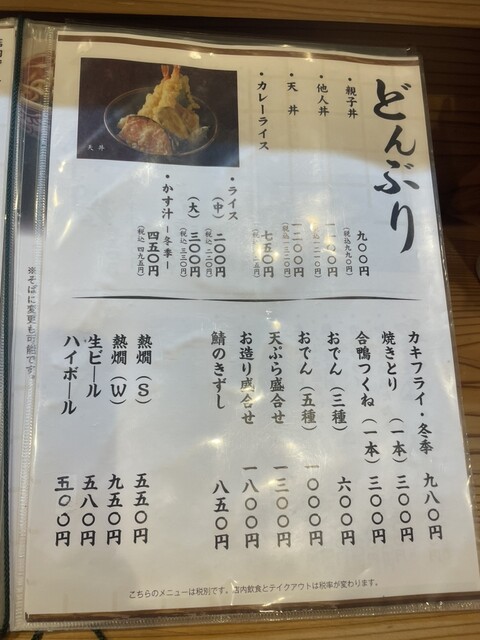 どんぶり
・親子丼 九〇〇円
(税込九九〇円)
・他人丼 一一〇〇円
(税込一二一〇円)
・天丼 一二〇〇円
(税込一三二〇円)
・カレーライス 七五〇円
・ライス
(中) 二〇〇円
(税込二二〇円)
(大) 三〇〇円
(税込三三〇円)
・かす汁 ー冬季ー 四五〇円
(税込四九五円)
天丼
カキフライ・冬季 九八〇円
焼きとり(一本) 三〇〇円
合鴨つくね(一本) 三〇〇円
おでん(三種) 六〇〇円
おでん(五種) 一〇〇〇円
天ぷら盛合せ 一三〇〇円
お造り盛合せ 一八〇〇円
鯖のきずし 八五〇円
熱燗(S) 五五〇円
熱燗(W) 九五〇円
生ビール 五八〇円
ハイボール 五〇〇円
こちらのメニューは税別です。店内飲食とテイクアウトは税率が変わります。
※そばに変更も可能です。